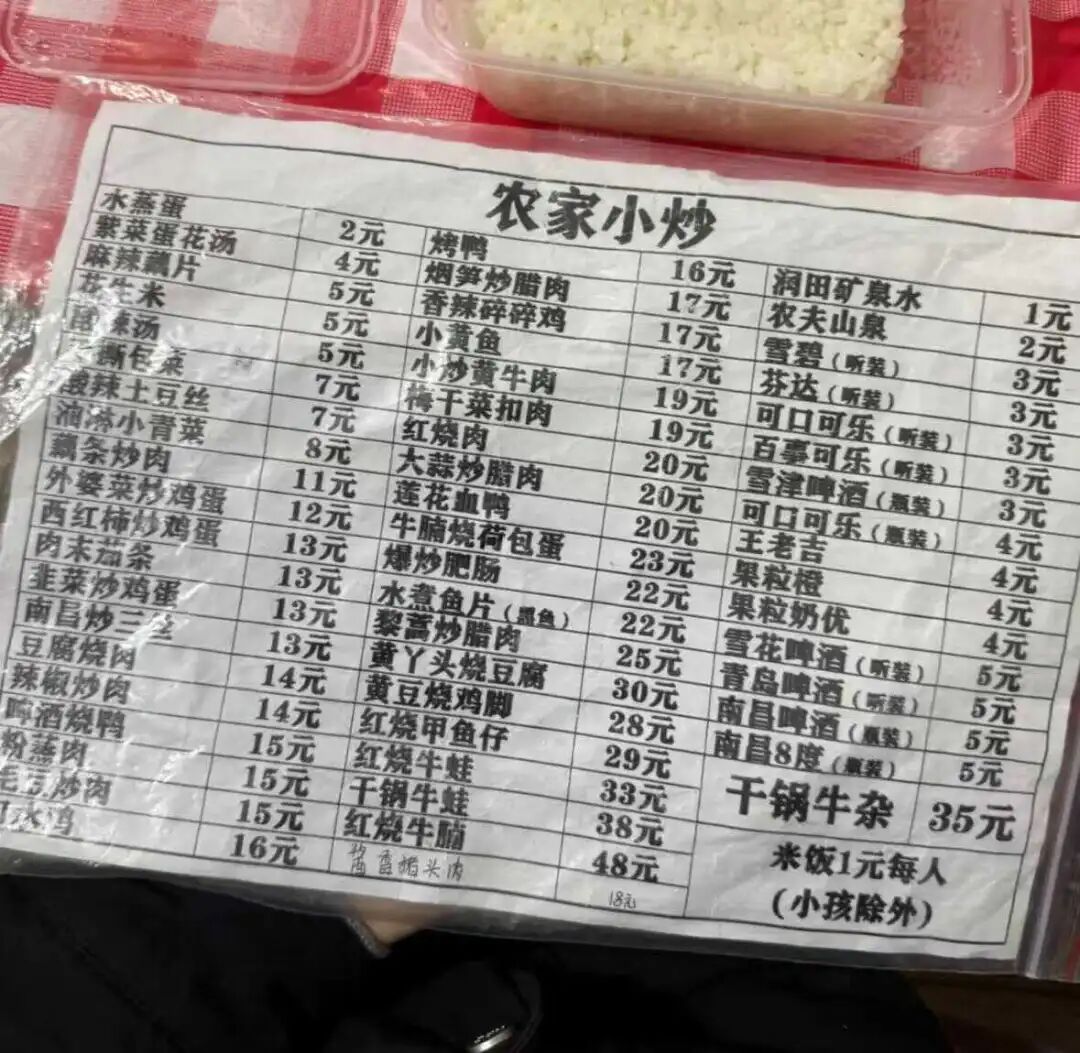 农家小炒
水蒸蛋 2元 烤鸭 16元 润田矿泉水 1元
紫菜蛋花汤 4元 烟笋炒腊肉 17元 农夫山泉 2元
麻辣藕片 5元 香辣碎碎鸡 17元 雪碧(听装) 3元
花生米 5元 小黄鱼 17元 芬达(听装) 3元
酸辣汤 5元 小炒黄牛肉 19元 可口可乐(听装) 3元
撕包菜 7元 梅干菜扣肉 19元 百事可乐(听装) 3元
酸辣土豆丝 7元 红烧肉 20元 雪津啤酒(瓶装) 3元
油淋小青菜 8元 大蒜炒腊肉 20元 可口可乐(瓶装) 4元
藕条炒肉 11元 莲花血鸭 20元 王老吉 4元
外婆菜炒鸡蛋 12元 牛腩烧荷包蛋 23元 果粒橙 4元
西红柿炒鸡蛋 13元 爆炒肥肠 22元 果粒奶优 4元
肉末茄条 13元 水煮鱼片(黑鱼) 22元 雪花啤酒(听装) 5元
韭菜炒鸡蛋 13元 黎蒿炒腊肉 25元 青岛啤酒(听装) 5元
南昌炒三丝 13元 黄丫头烧豆腐 30元 南昌啤酒(瓶装) 5元
豆腐烧肉 14元 黄豆烧鸡脚 28元 南昌8度(瓶装) 5元
辣椒炒肉 14元 红烧甲鱼仔 29元 干锅牛杂 35元
啤酒烧鸭 15元 红烧牛蛙 33元
粉蒸肉 15元 干锅牛蛙 38元 米饭1元每人
毛豆炒肉 15元 红烧牛腩 48元 (小孩除外)
水鸡 16元 酱香猪头肉 18元